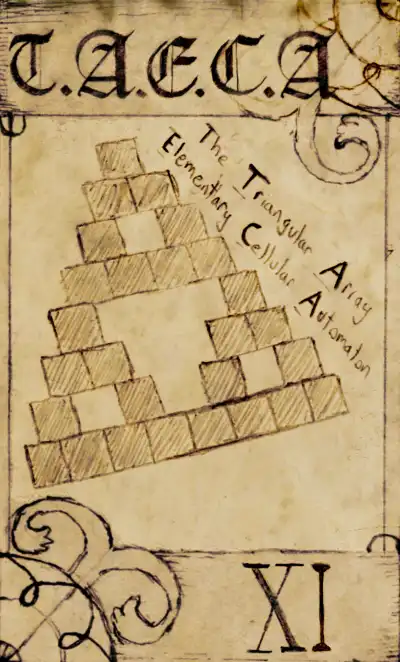 T.A.E.C.A
The Triangular Array
Elementary Cellular Automaton
XI